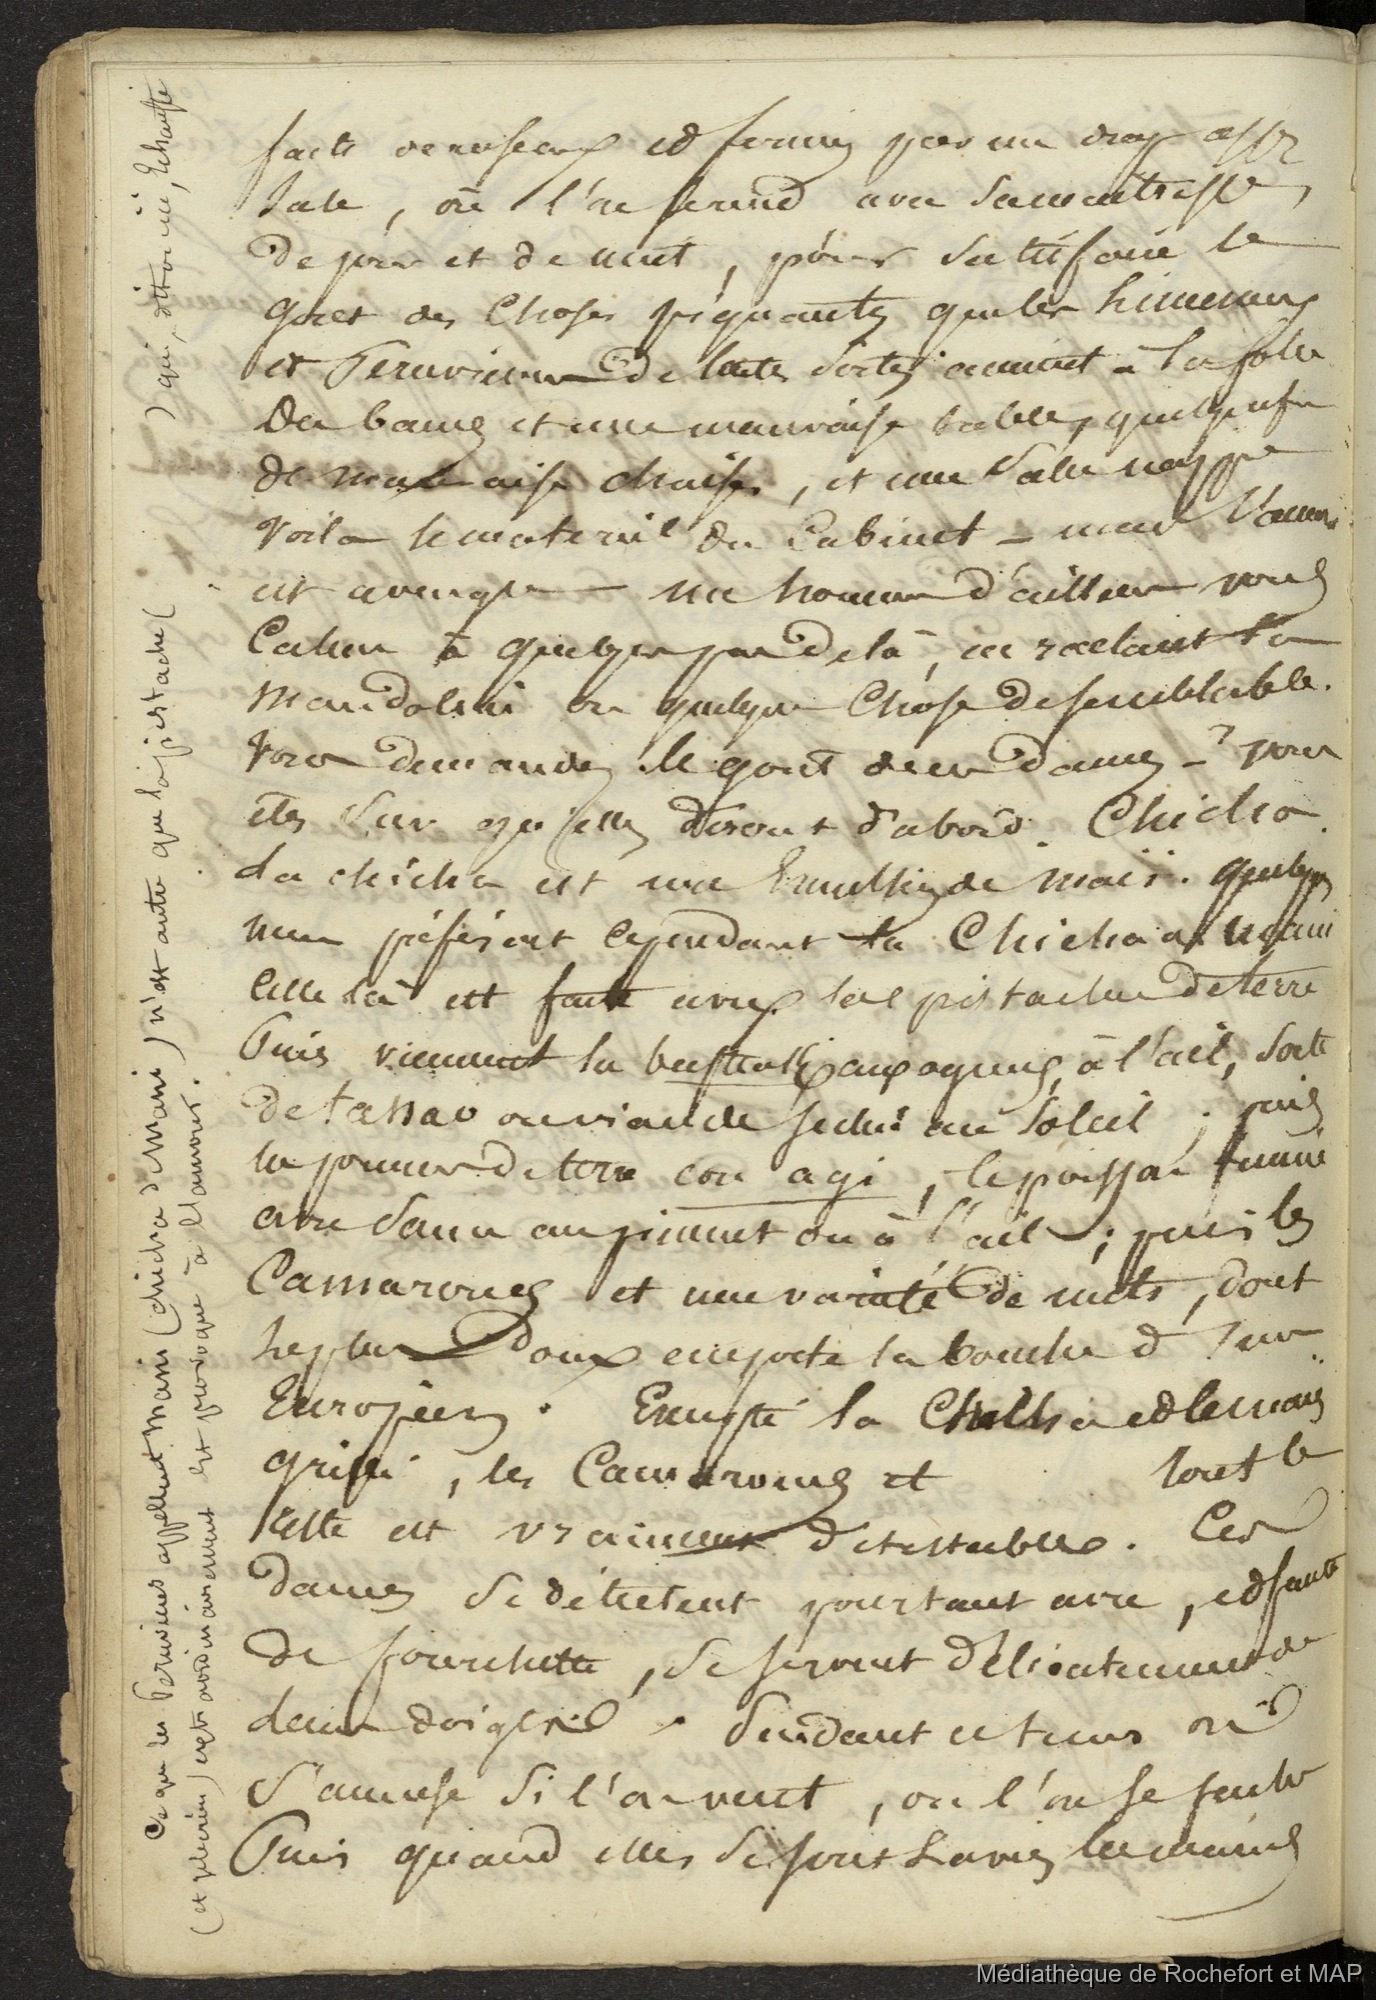 faits de roseaux et fermés par un drap assez
sale, où l'on se rend avec sa maitresse,
de jour et de nuit, pour satisfaire le
gout des choses piquantes que les
et Peruviennes de toutes sortes aiment à la folie
Des bancs et une mauvaise table, quelquefois
de mauvaise chaises, et une sale nappe
Voila le materiel du Cabinet – mais l'amour
est aveugle – un homme d'ailleurs vous
à quelques pas de là, en raclant la
Mandoline ou quelque chose de semblable.
Vous demandez le gout de ces dames – ? vous
êtes sur qu'elles diront d'abord. Chicha.
La chicha est une Emulsion de maïs. quelques
unes préfèrent cependant la Chicha de mani
celle là est faite avec les pistaches de terre
Puis viennent la aux oignons, à l'ail, sorte
de tassao ou viande sechée au soleil ; puis
les pommes de terre con agi, le poisson fumé
avec sauce au piment ou à l'ail ; puis les
Camarones et une variété de mets, dont
le plus doux emporte la bouche d'un
Européen. Excepté la Chicha et le maïs
grillé, les Camarones et tout le
reste est vraiment detestable. Ces
dames se délectent pourtant avec, et faute
de fourchette, se servent délicatement de
leurs doigts. Pendant ce tems on
s'amuse si l'on veut, ou l'on se
Puis quand elles se sont lavées les mains
Ce que les Peruviens appellent Mani (chicha de Mani) n'est autre que la pistache (
) qui, dit-on ici, Echauffe
(et plerien) extraordinairement et provoque à l'amour.
Médiathèque de Rochefort et MAP